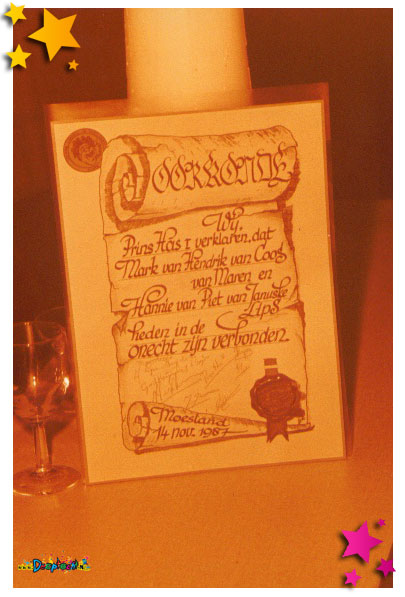 OORKONDE
Wij,
Prins Hais I verklaren dat
Mark van Hendrik van Coos
van Maren en
Hannie van Piet van Januske
Lips
heden in de
onecht zijn verbonden
Moesland
14 nov. 1987